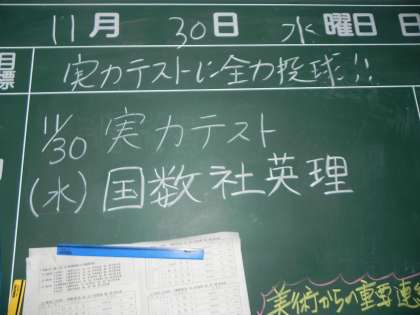 11月 30日 水曜日 日
目標 実力テストに全力投球!!
11/30 実力テスト
(水) 国数社英理
美術からの重要連絡